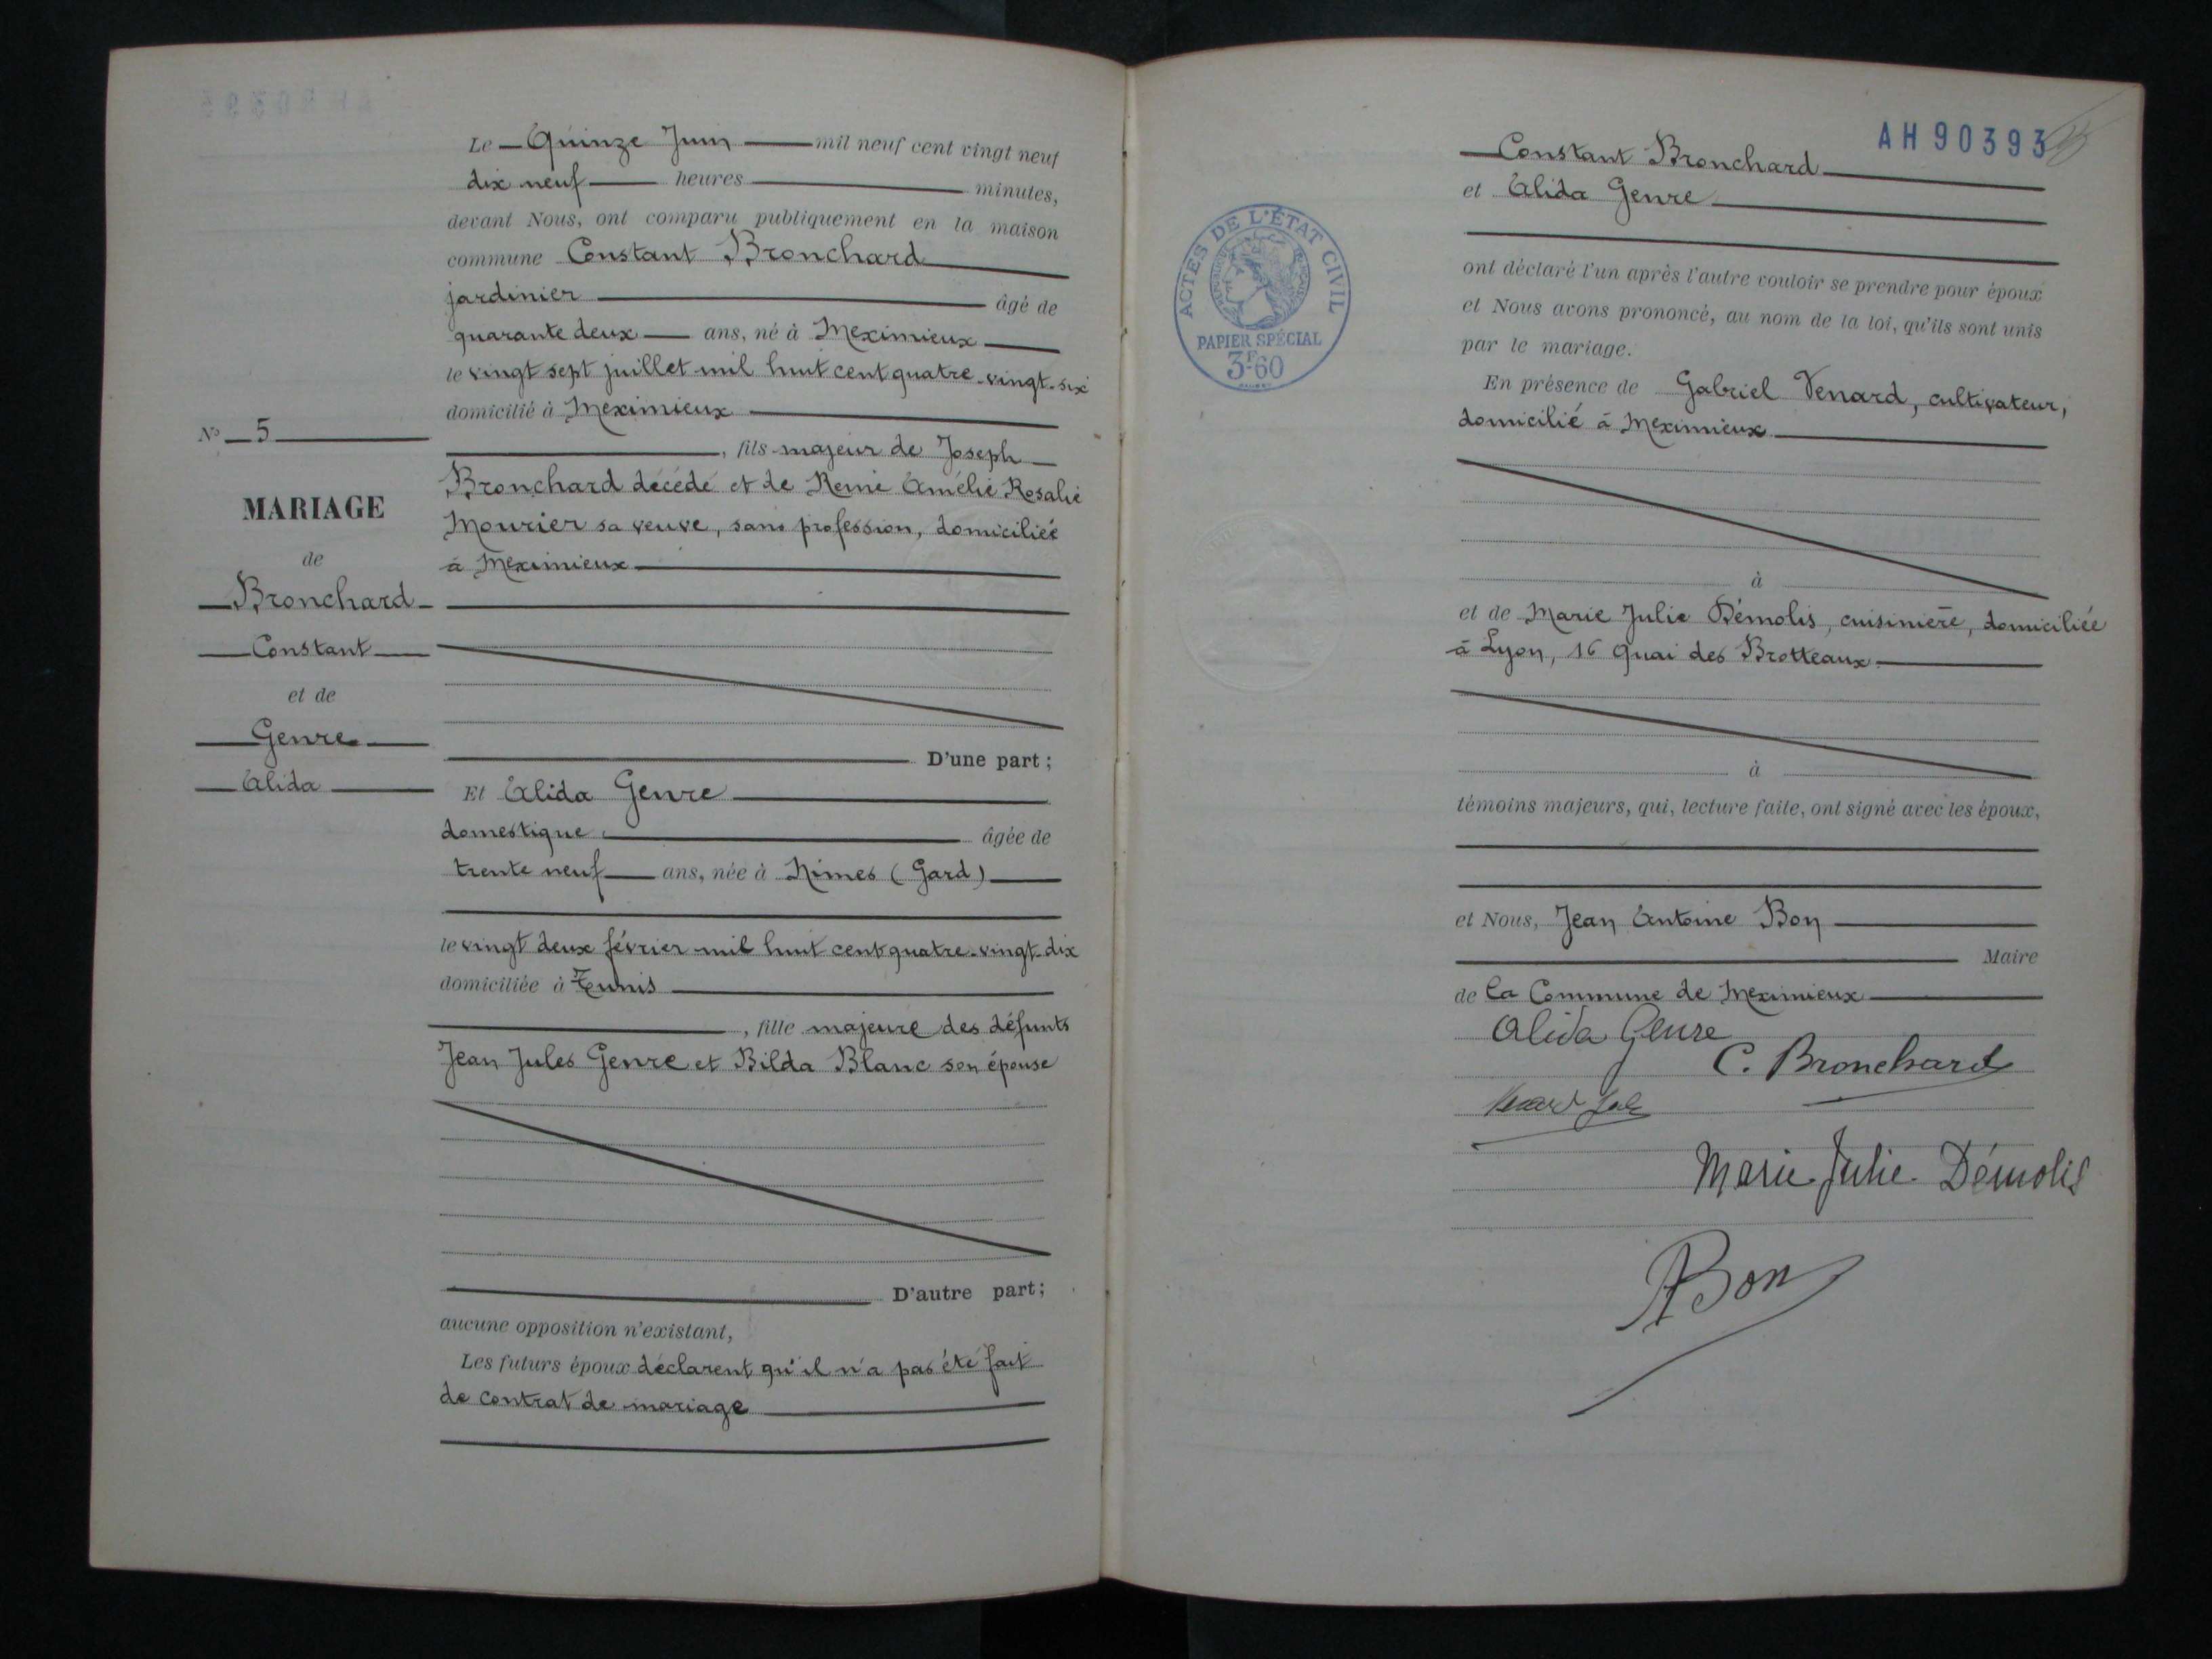 Le Quinze Juin mil neuf cent vingt neuf
dix neuf heures minutes,
devant Nous, ont comparu publiquement en la maison
commune Constant Bronchard
jardinier âgé de
quarante deux ans, né à Meximieux
le vingt sept juillet mil huit cent quatre-vingt-six
domicilié à Meximieux
, fils majeur de Joseph
Bronchard décédé et de Reine Amélie Rosalie
Mourier sa veuve, sans profession, domiciliée
à Meximieux
N° 5
MARIAGE
de
Bronchard
Constant
et de
Genre
Alida
D'une part;
Et Alida Genre
domestique âgée de
trente neuf ans, née à Nimes (Gard)
le vingt deux février mil huit cent quatre-vingt-dix
domiciliée à Tunis
, fille majeure des défunts
Jean Jules Genre et Bilda Blanc son épouse
D'autre part;
aucune opposition n'existant,
Les futurs époux déclarent qu'il n'a pas été fait
de contrat de mariage
AH90393
Constant Bronchard
et Alida Genre
ACTES DE L'ÉTAT CIVIL
PAPIER SPÉCIAL
3F60
ont déclaré l'un après l'autre vouloir se prendre pour époux
et Nous avons prononcé, au nom de la loi, qu'ils sont unis
par le mariage.
En présence de Gabriel Venard, cultivateur,
domicilié à Meximieux
à
et de Marie Julie Démolis, cuisinière, domiciliée
à Lyon, 16 Quai des Brotteaux
à
témoins majeurs, qui, lecture faite, ont signé avec les époux,
et Nous, Jean Antoine Bon
Maire
de la Commune de Meximieux
Alida Genre
C. Bronchard
Marie Julie Démolis
ABon